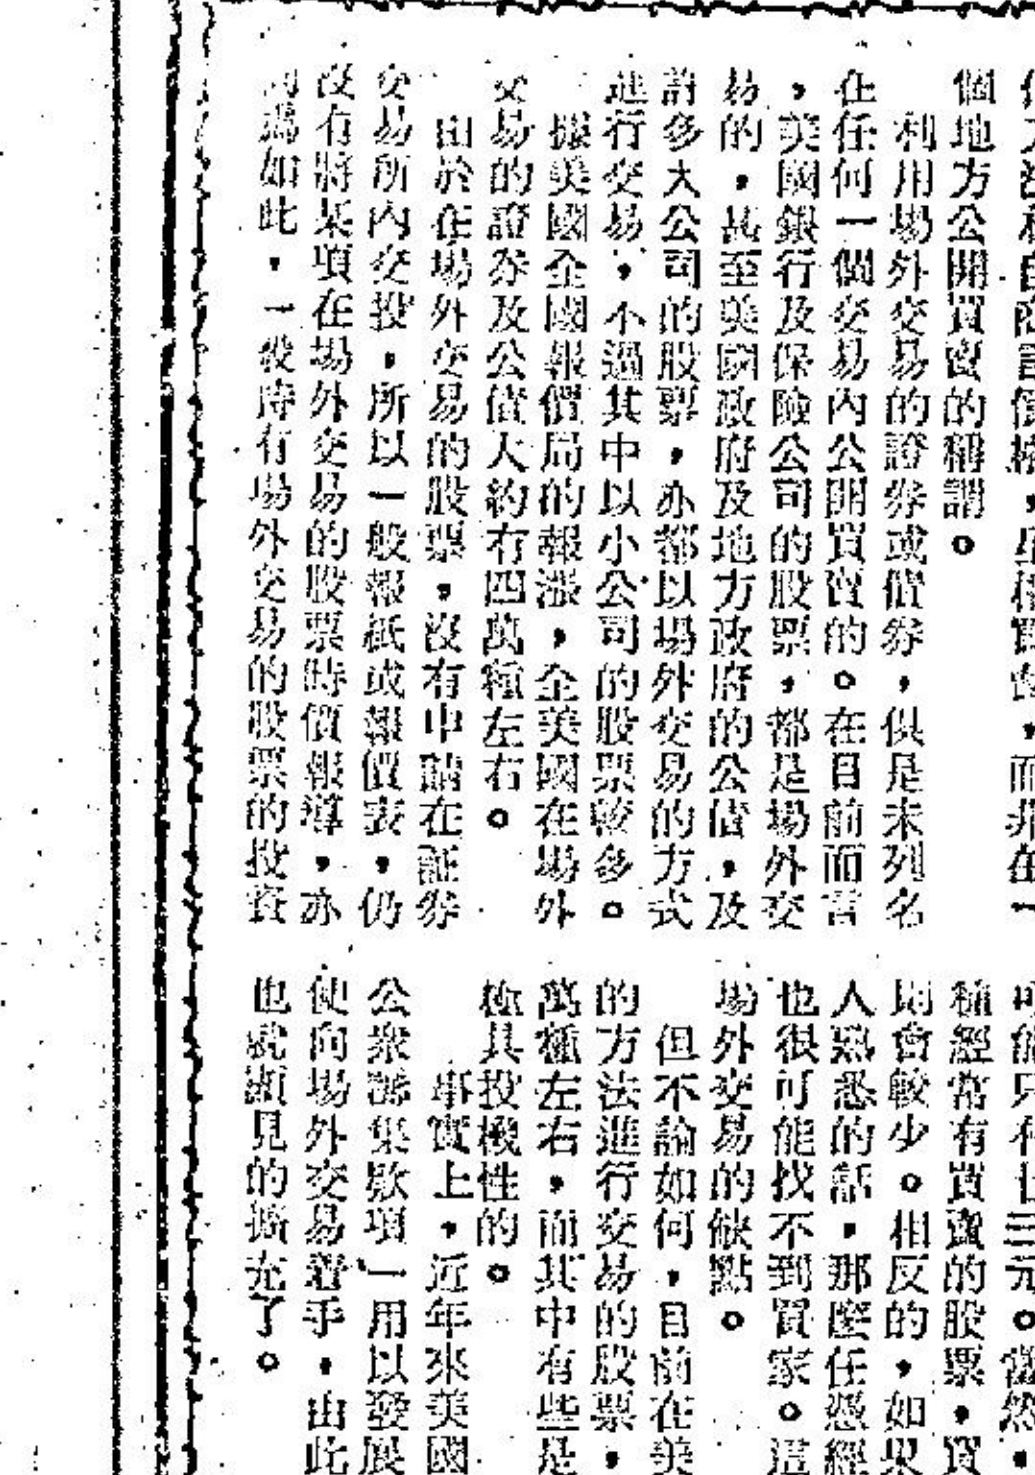 個地方公開買賣的稱謂。
利用場外交易的證券或債券，俱是未列名
在任何一個交易內公開買賣的。在目前而言
，美國銀行及保險公司的股票，都是場外交
易的，甚至美國政府及地方政府的公債，及
許多大公司的股票，亦都以場外交易的方式
進行交易，不過其中以小公司的股票較多。
據美國全國報價局的報漲，全美國在場外
交易的證券及公債大約有四萬種左右。
由於在場外交易的股票，沒有申請在証券
交易所內交投，所以一般報紙或報價表，仍
沒有將某項在場外交易的股票時價報導，亦
為如此，一般時有場外交易的股票的投資
可能只有廿三元。當然，
種經常有買賣的股票，買
則會較少。相反的，如果
人熟悉的話，那麼任憑經
也很可能找不到買家。這
場外交易的缺點。
但不論如何，目前在美
的方法進行交易的股票，
萬種左右，而其中有些是
極具投機性的。
事實上，近年來美國
公眾籌集款項，用以發展
使向場外交易着手，由此
也就顯見的擴充了。